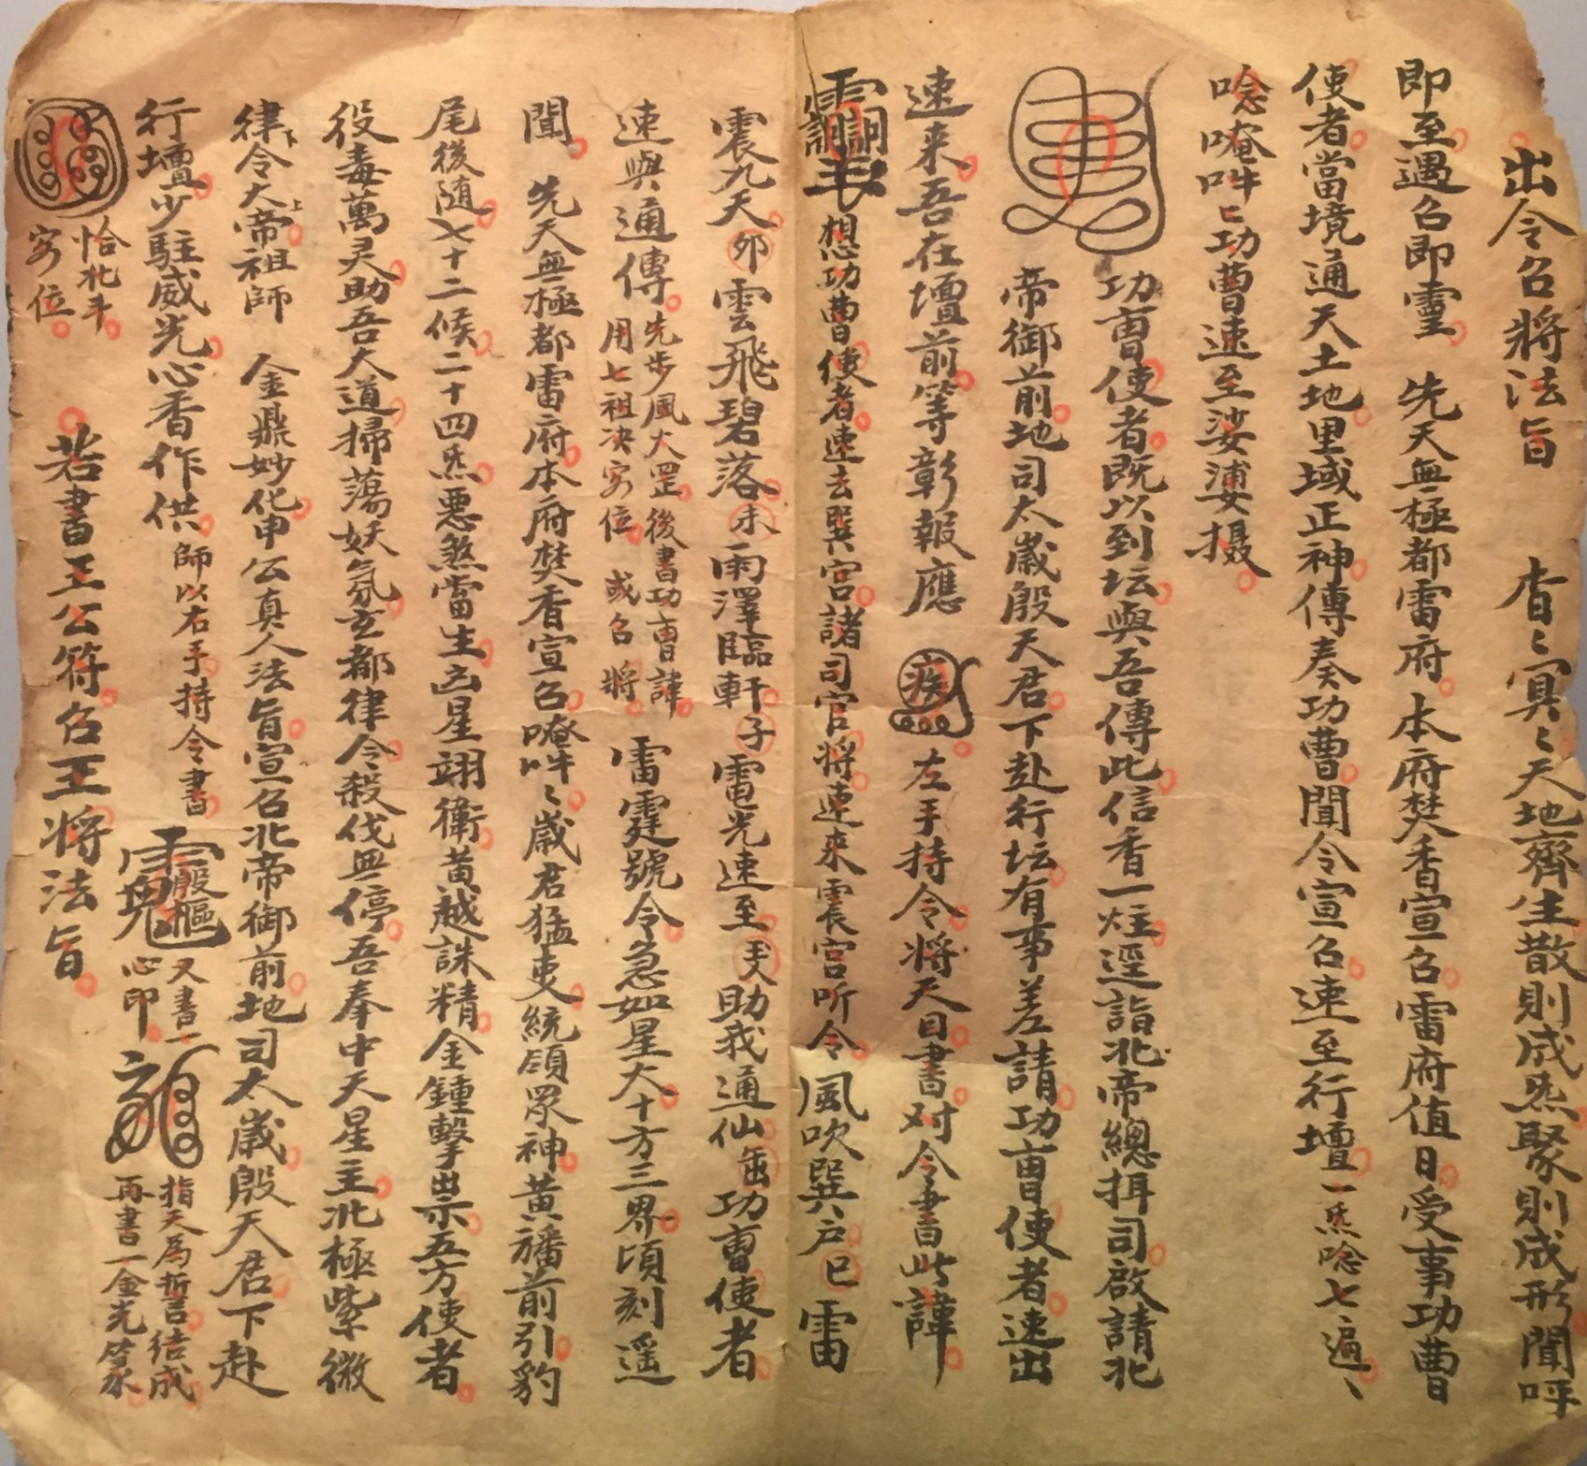 出令召將法旨 杳〻冥〻天地齊生散則成炁聚則成形聞呼
即至遇召即靈 先天無極都雷府本府焚香宣召雷府值日受事功曹
使者當境通天土地里域正神傳奏功曹聞令宣召速至行壇一炁唸七遍、
唸唵吽〻功曹速至娑婆摄
功曹使者既以到坛與吾傳此信香一炷逕詣北帝總捐司啟請北
帝御前地司太歲殷天君下赴行坛有事差請功曹使者速出
速来吾在壇前等彰報應 疾 左手持令将天目書对令書此諱
想功曹使者速去巽宫諸司官将速来震宫听令 風吹巽户巳雷
震九天卯雲飛碧落未雨澤臨軒子電光速至助我通仙功曹使者
速與通傳先步風火罡後書功曹諱用七祖决寄位或召將 雷霆號令急如星火十方三界頃刻遥
聞 先天無極都雷府本府焚香宣召唵吽〻歲君猛吏統領眾神黄旛前引豹
尾後随七十二候二十四炁悪煞當生凶星翊衛黄越誅精金鍾擊祟五方使者
役毒萬灵助吾大道掃蕩妖氛玄都律令殺伐無停吾奉中天星主北極紫微
律令大帝祖師 金鼎妙化申公真人法旨宣召北帝御前地司太歲殷天君下赴
行壇少駐威光心香作供師以右手持令書 殷樞 又書一心印 指天為哲言结成再書一金光篆
恰北斗寄位 若書王公符召王将法旨